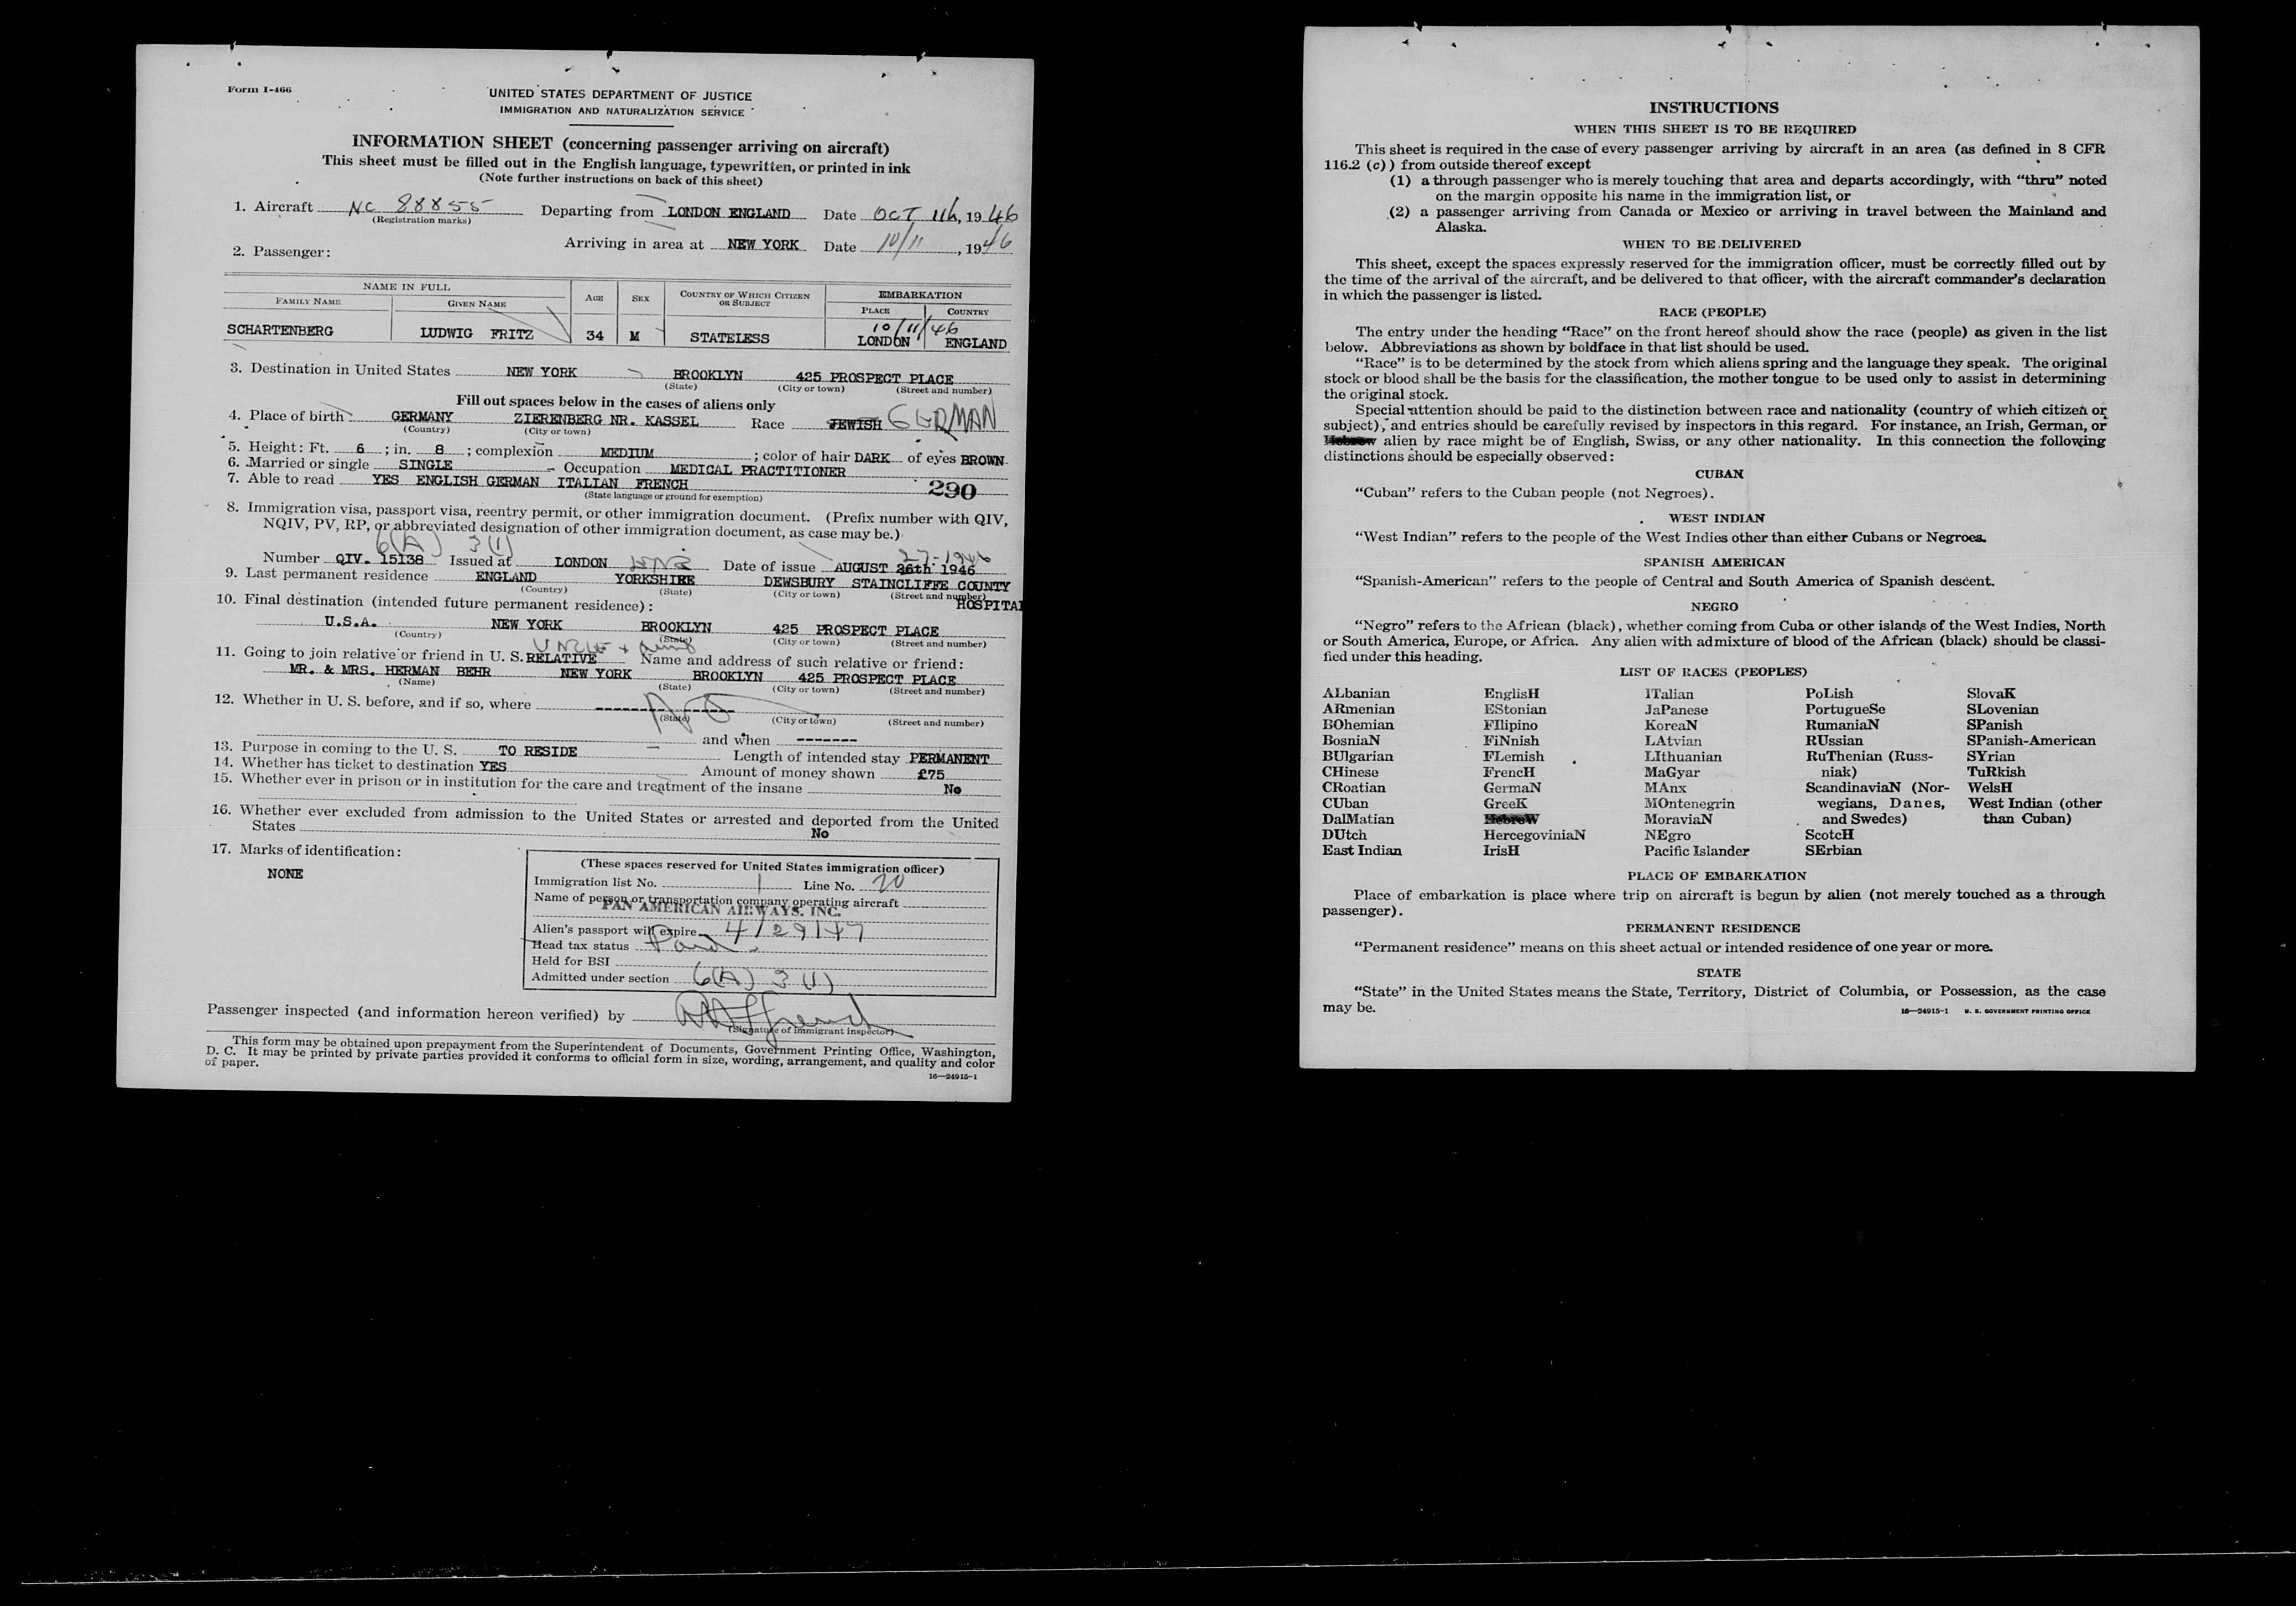 Form I-466
UNITED STATES DEPARTMENT OF JUSTICE
IMMIGRATION AND NATURALIZATION SERVICE
INFORMATION SHEET (concerning passenger arriving on aircraft)
This sheet must be filled out in the English language, typewritten, or printed in ink
(Note further instructions on back of this sheet)
1. Aircraft NC 88855 Departing from LONDON ENGLAND Date OCT 11th, 1946
(Registration marks)
Arriving in area at NEW YORK Date 10/11, 1946
2. Passenger:
NAME IN FULL AGE SEX COUNTRY OF WHICH CITIZEN OR SUBJECT EMBARKATION
FAMILY NAME GIVEN NAME PLACE COUNTRY
10/11/46
SCHARTENBERG LUDWIG FRITZ 34 M STATELESS LONDON ENGLAND
3. Destination in United States NEW YORK BROOKLYN 425 PROSPECT PLACE
(State) (City or town) (Street and number)
Fill out spaces below in the cases of aliens only
4. Place of birth GERMANY ZIERENBERG NR. KASSEL Race JEWISH GERMAN
(Country) (City or town)
5. Height: Ft. 6; in. 8; complexion MEDIUM; color of hair DARK of eyes BROWN
6. Married or single SINGLE Occupation MEDICAL PRACTITIONER
7. Able to read YES ENGLISH GERMAN ITALIAN FRENCH 290
(State language or ground for exemption)
8. Immigration visa, passport visa, reentry permit, or other immigration document. (Prefix number with QIV,
NQIV, PV, RP, or abbreviated designation of other immigration document, as case may be.)
6(A) 3(1) 27-1946
Number QIV. 15138 Issued at LONDON Date of issue AUGUST 26th 1946
9. Last permanent residence ENGLAND YORKSHIRE DEWSBURY STAINCLIFFE COUNTY
(Country) (State) (City or town) (Street and number)
HOSPITAL
10. Final destination (intended future permanent residence):
U.S.A. NEW YORK BROOKLYN 425 PROSPECT PLACE
(Country) (State) (City or town) (Street and number)
UNCLE + Aunt
11. Going to join relative or friend in U. S. RELATIVE Name and address of such relative or friend:
MR. & MRS. HERMAN BEHR NEW YORK BROOKLYN 425 PROSPECT PLACE
(Name) (State) (City or town) (Street and number)
12. Whether in U. S. before, and if so, where ---------- NO
(State) (City or town) (Street and number)
and when -------
13. Purpose in coming to the U. S. TO RESIDE Length of intended stay PERMANENT
14. Whether has ticket to destination YES Amount of money shown £75
15. Whether ever in prison or in institution for the care and treatment of the insane No
16. Whether ever excluded from admission to the United States or arrested and deported from the United
States No
17. Marks of identification:
NONE
(These spaces reserved for United States immigration officer)
Immigration list No. 1 Line No. 20
Name of person or transportation company operating aircraft
PAN AMERICAN AIRWAYS, INC.
Alien's passport will expire 4/29/47
Head tax status Paid
Held for BSI
Admitted under section 6(A) 3(1)
Passenger inspected (and information hereon verified) by
(Signature of Immigrant Inspector)
This form may be obtained upon prepayment from the Superintendent of Documents, Government Printing Office, Washington,
D. C. It may be printed by private parties provided it conforms to official form in size, wording, arrangement, and quality and color
of paper.
16—24915-1
INSTRUCTIONS
WHEN THIS SHEET IS TO BE REQUIRED
This sheet is required in the case of every passenger arriving by aircraft in an area (as defined in 8 CFR
116.2 (c)) from outside thereof except
(1) a through passenger who is merely touching that area and departs accordingly, with "thru" noted
on the margin opposite his name in the immigration list, or
(2) a passenger arriving from Canada or Mexico or arriving in travel between the Mainland and
Alaska.
WHEN TO BE DELIVERED
This sheet, except the spaces expressly reserved for the immigration officer, must be correctly filled out by
the time of the arrival of the aircraft, and be delivered to that officer, with the aircraft commander's declaration
in which the passenger is listed.
RACE (PEOPLE)
The entry under the heading "Race" on the front hereof should show the race (people) as given in the list
below. Abbreviations as shown by boldface in that list should be used.
"Race" is to be determined by the stock from which aliens spring and the language they speak. The original
stock or blood shall be the basis for the classification, the mother tongue to be used only to assist in determining
the original stock.
Special attention should be paid to the distinction between race and nationality (country of which citizen or
subject), and entries should be carefully revised by inspectors in this regard. For instance, an Irish, German, or
Hebrew alien by race might be of English, Swiss, or any other nationality. In this connection the following
distinctions should be especially observed:
CUBAN
"Cuban" refers to the Cuban people (not Negroes).
WEST INDIAN
"West Indian" refers to the people of the West Indies other than either Cubans or Negroes.
SPANISH AMERICAN
"Spanish-American" refers to the people of Central and South America of Spanish descent.
NEGRO
"Negro" refers to the African (black), whether coming from Cuba or other islands of the West Indies, North
or South America, Europe, or Africa. Any alien with admixture of blood of the African (black) should be classi-
fied under this heading.
LIST OF RACES (PEOPLES)
ALbanian EnglisH ITalian PoLish SlovaK
ARmenian EStonian JaPanese PortugueSe SLovenian
BOhemian FIlipino KoreaN RumaniaN SPanish
BosniaN FiNnish LAtvian RUssian SPanish-American
BUlgarian FLemish LIthuanian RuThenian (Russ- SYrian
CHinese FrencH MaGyar niak) TuRkish
CRoatian GermaN MAnx ScandinaviaN (Nor- WelsH
CUban GreeK MOntenegrin wegians, Danes, West Indian (other
DalMatian HebreW MoraviaN and Swedes) than Cuban)
DUtch HercegoviniaN NEgro ScotcH
East Indian IrisH Pacific Islander SErbian
PLACE OF EMBARKATION
Place of embarkation is place where trip on aircraft is begun by alien (not merely touched as a through
passenger).
PERMANENT RESIDENCE
"Permanent residence" means on this sheet actual or intended residence of one year or more.
STATE
"State" in the United States means the State, Territory, District of Columbia, or Possession, as the case
may be.
16—24915-1 U. S. GOVERNMENT PRINTING OFFICE